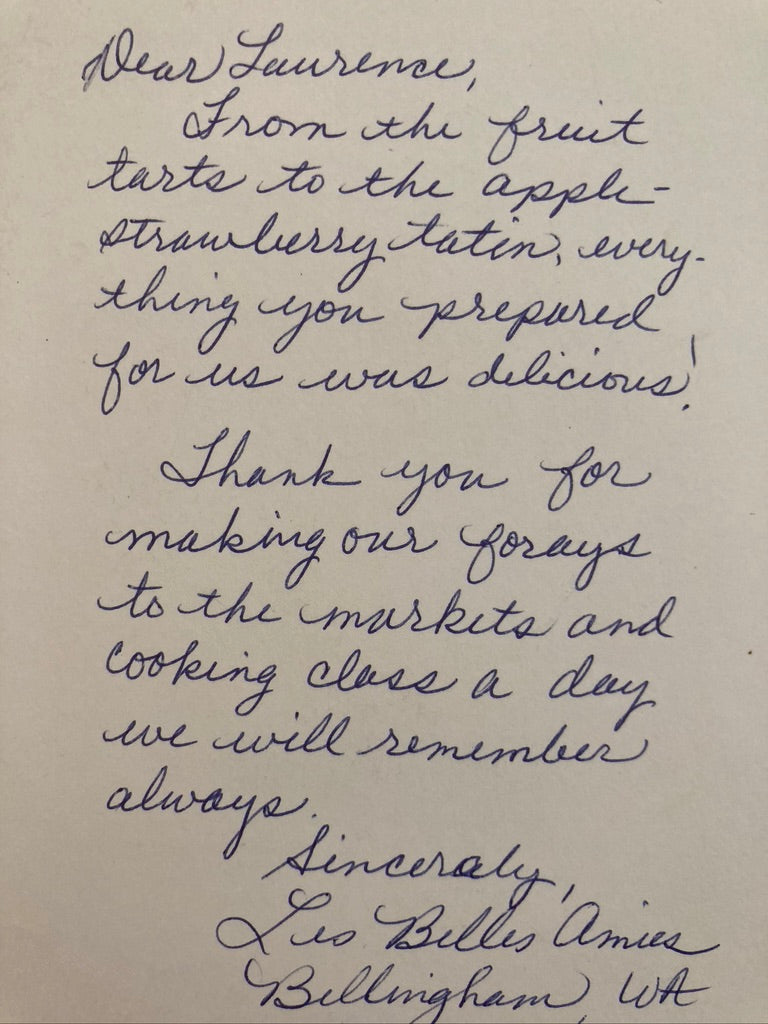 Dear Laurence,
From the fruit
tarts to the apple-
strawberry tatin, every-
thing you prepared
for us was delicious!
Thank you for
making our forays
to the markets and
cooking class a day
we will remember
always.
Sinceraly,
Les Belles Amies
Bellingham, WA